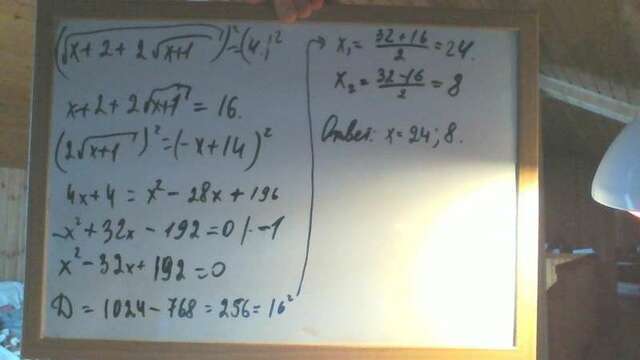 (√(x+2+2√(x+1)))²=(4)²
x+2+2√(x+1) = 16.
(2√(x+1))²=(-x+14)²
4x+4 = x² - 28x + 196
-x²+32x - 192=0 |·-1
x²-32x+192=0
D = 1024-768=256=16²
→ x₁ = (32+16)/2 = 24.
x₂ = (32-16)/2 = 8
Ответ: x=24; 8.